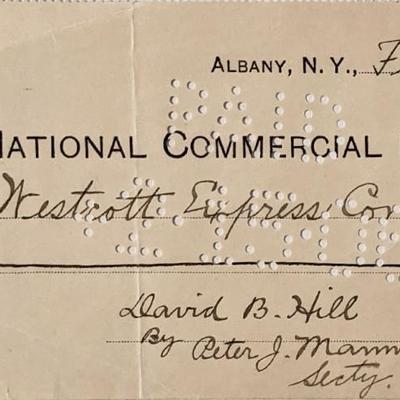 ALBANY, N. Y.,
PAID
NATIONAL COMMERCIAL
Westcott Express Com
David B. Hill
By Peter J. Mann
Secty.